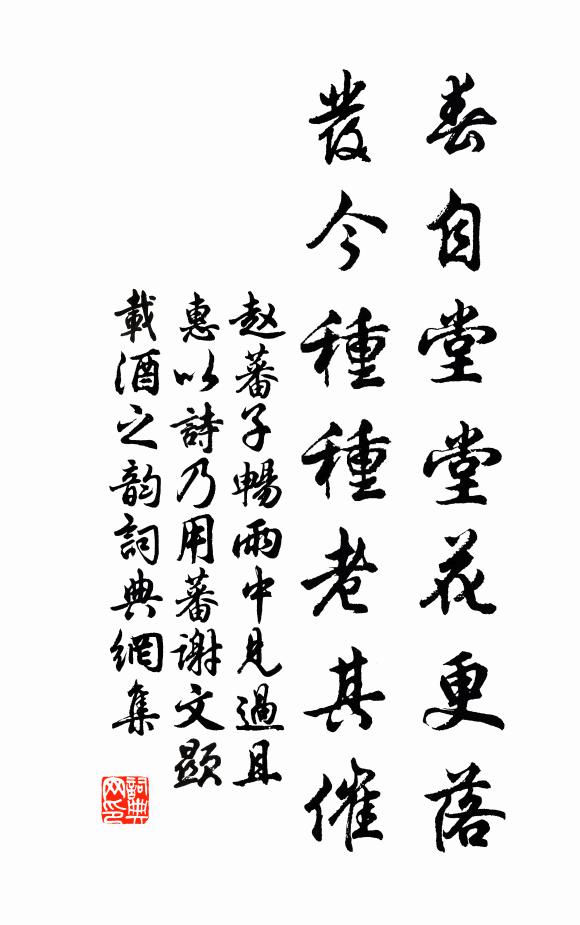 春自堂堂花更落
發今種種老其催
赵蕃子暢雨中見過且
惠以詩乃用蕃謝文顯
載酒之韵詞典網集
詞典网印